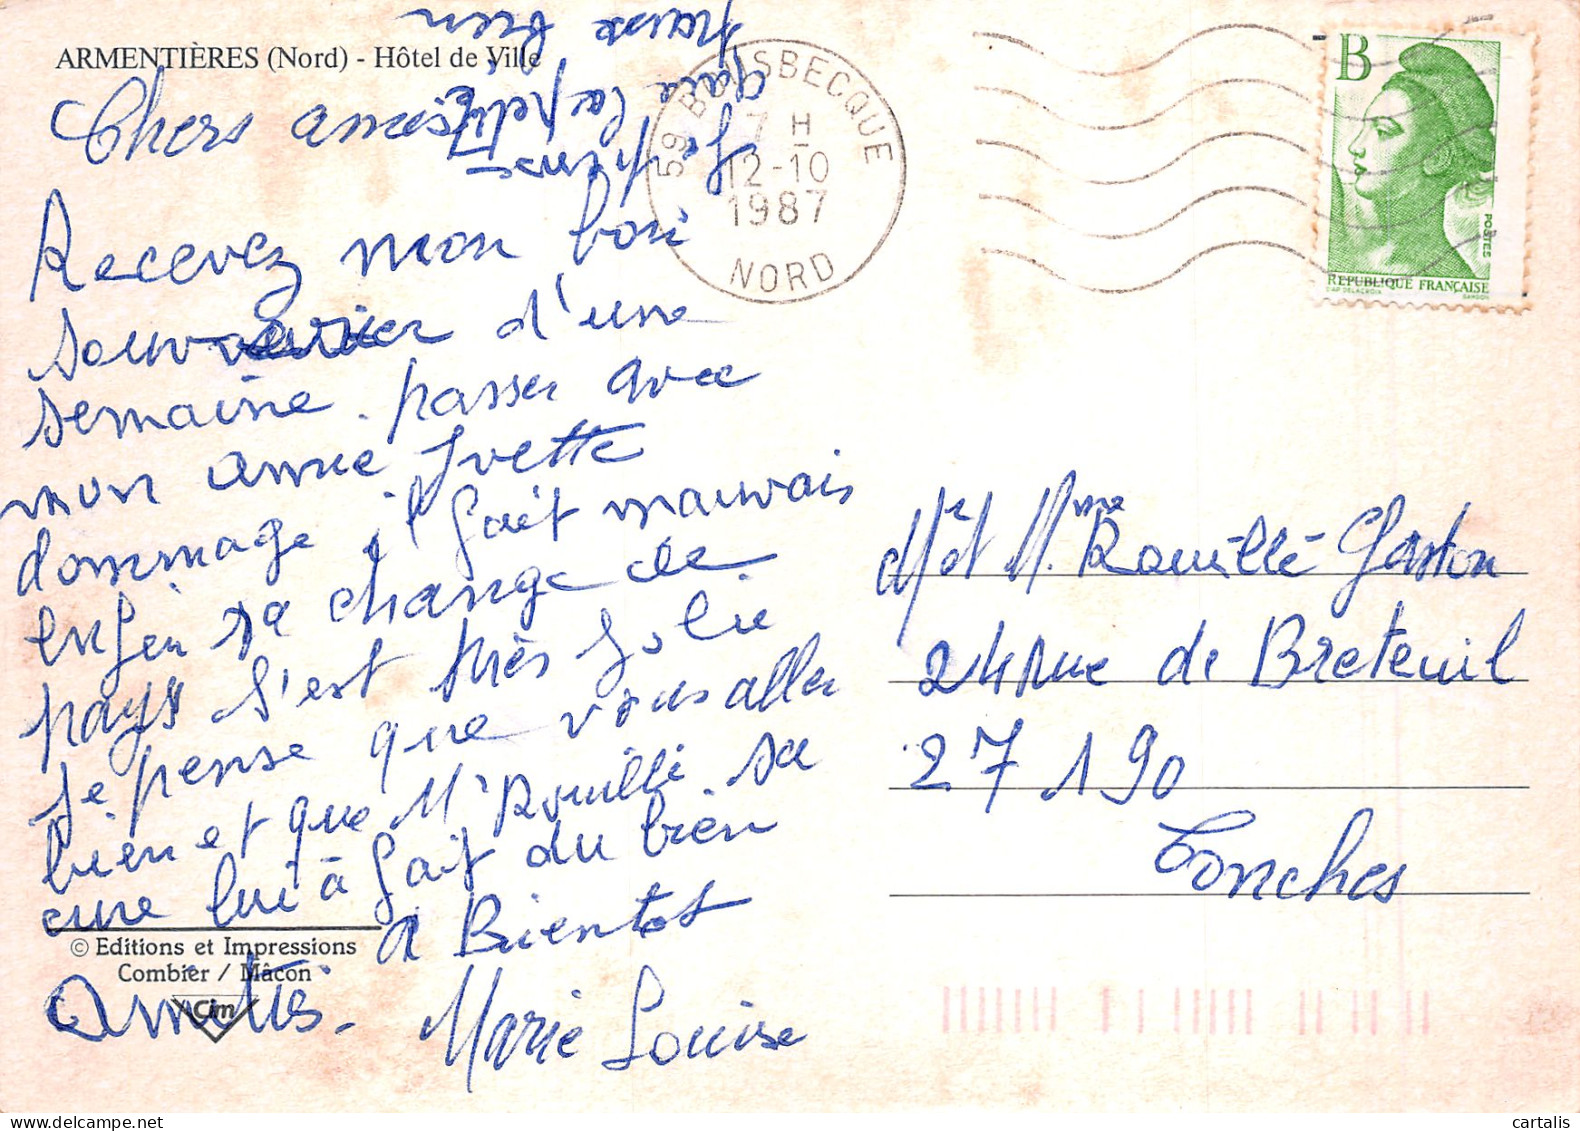 ARMENTIÈRES (Nord) - Hôtel de Ville
Chers amies
Recevez mon bon
souvenier d'une
semaine. passer avec
mon amie Yvette
dommage il fait mauvais
enfin sa change de
pays s'est très Jolie.
Je pense que vous aller
bien et que Mr Rouillé. sa
cure lui à fait du bien
à Bientot
Amitiés.
Marie Louise
Je pense
que la petite
passe bien
© Editions et Impressions
Combier / Mâcon
Cim
59 BOUSBECQUE
7 H
12-10
1987
NORD
B
POSTES
REPUBLIQUE FRANÇAISE
D'AP. DELACROIX GANDON
Mr et Mme Rouillé Gaston
24 rue de Breteuil
27 190
Conches
cartalis